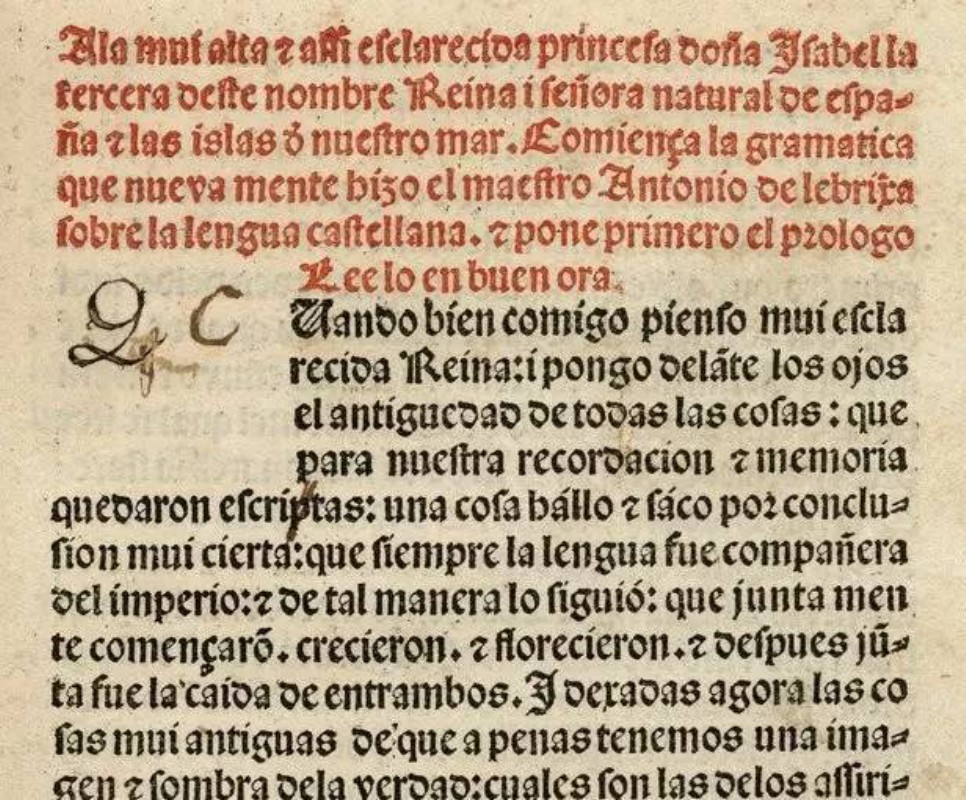 Ala mui alta ⁊ assi esclarecida princesa doña Isabel la
tercera deste nombre Reina i señora natural de espa⸗
ña ⁊ las islas đ nuestro mar. Comiença la gramatica
que nueva mente hizo el maestro Antonio de lebrixa
sobre la lengua castellana. ⁊ pone primero el prologo
Lee lo en buen ora.
Q C
Uando bien comigo pienso mui escla
recida Reina: i pongo delãte los ojos
el antiguedad de todas las cosas: que
para nuestra recordacion ⁊ memoria
quedaron escriptas: una cosa hállo ⁊ sáco por conclu⸗
sion mui cierta: que siempre la lengua fue compañera
del imperio: ⁊ de tal manera lo siguió: que junta men
te començarõ. crecieron. ⁊ florecieron. ⁊ despues jũ⸗
ta fue la caida de entrambos. I dexadas agora las co
sas mui antiguas de que a penas tenemos una ima⸗
gen ⁊ sombra dela verdad: cuales son las delos assiri⸗